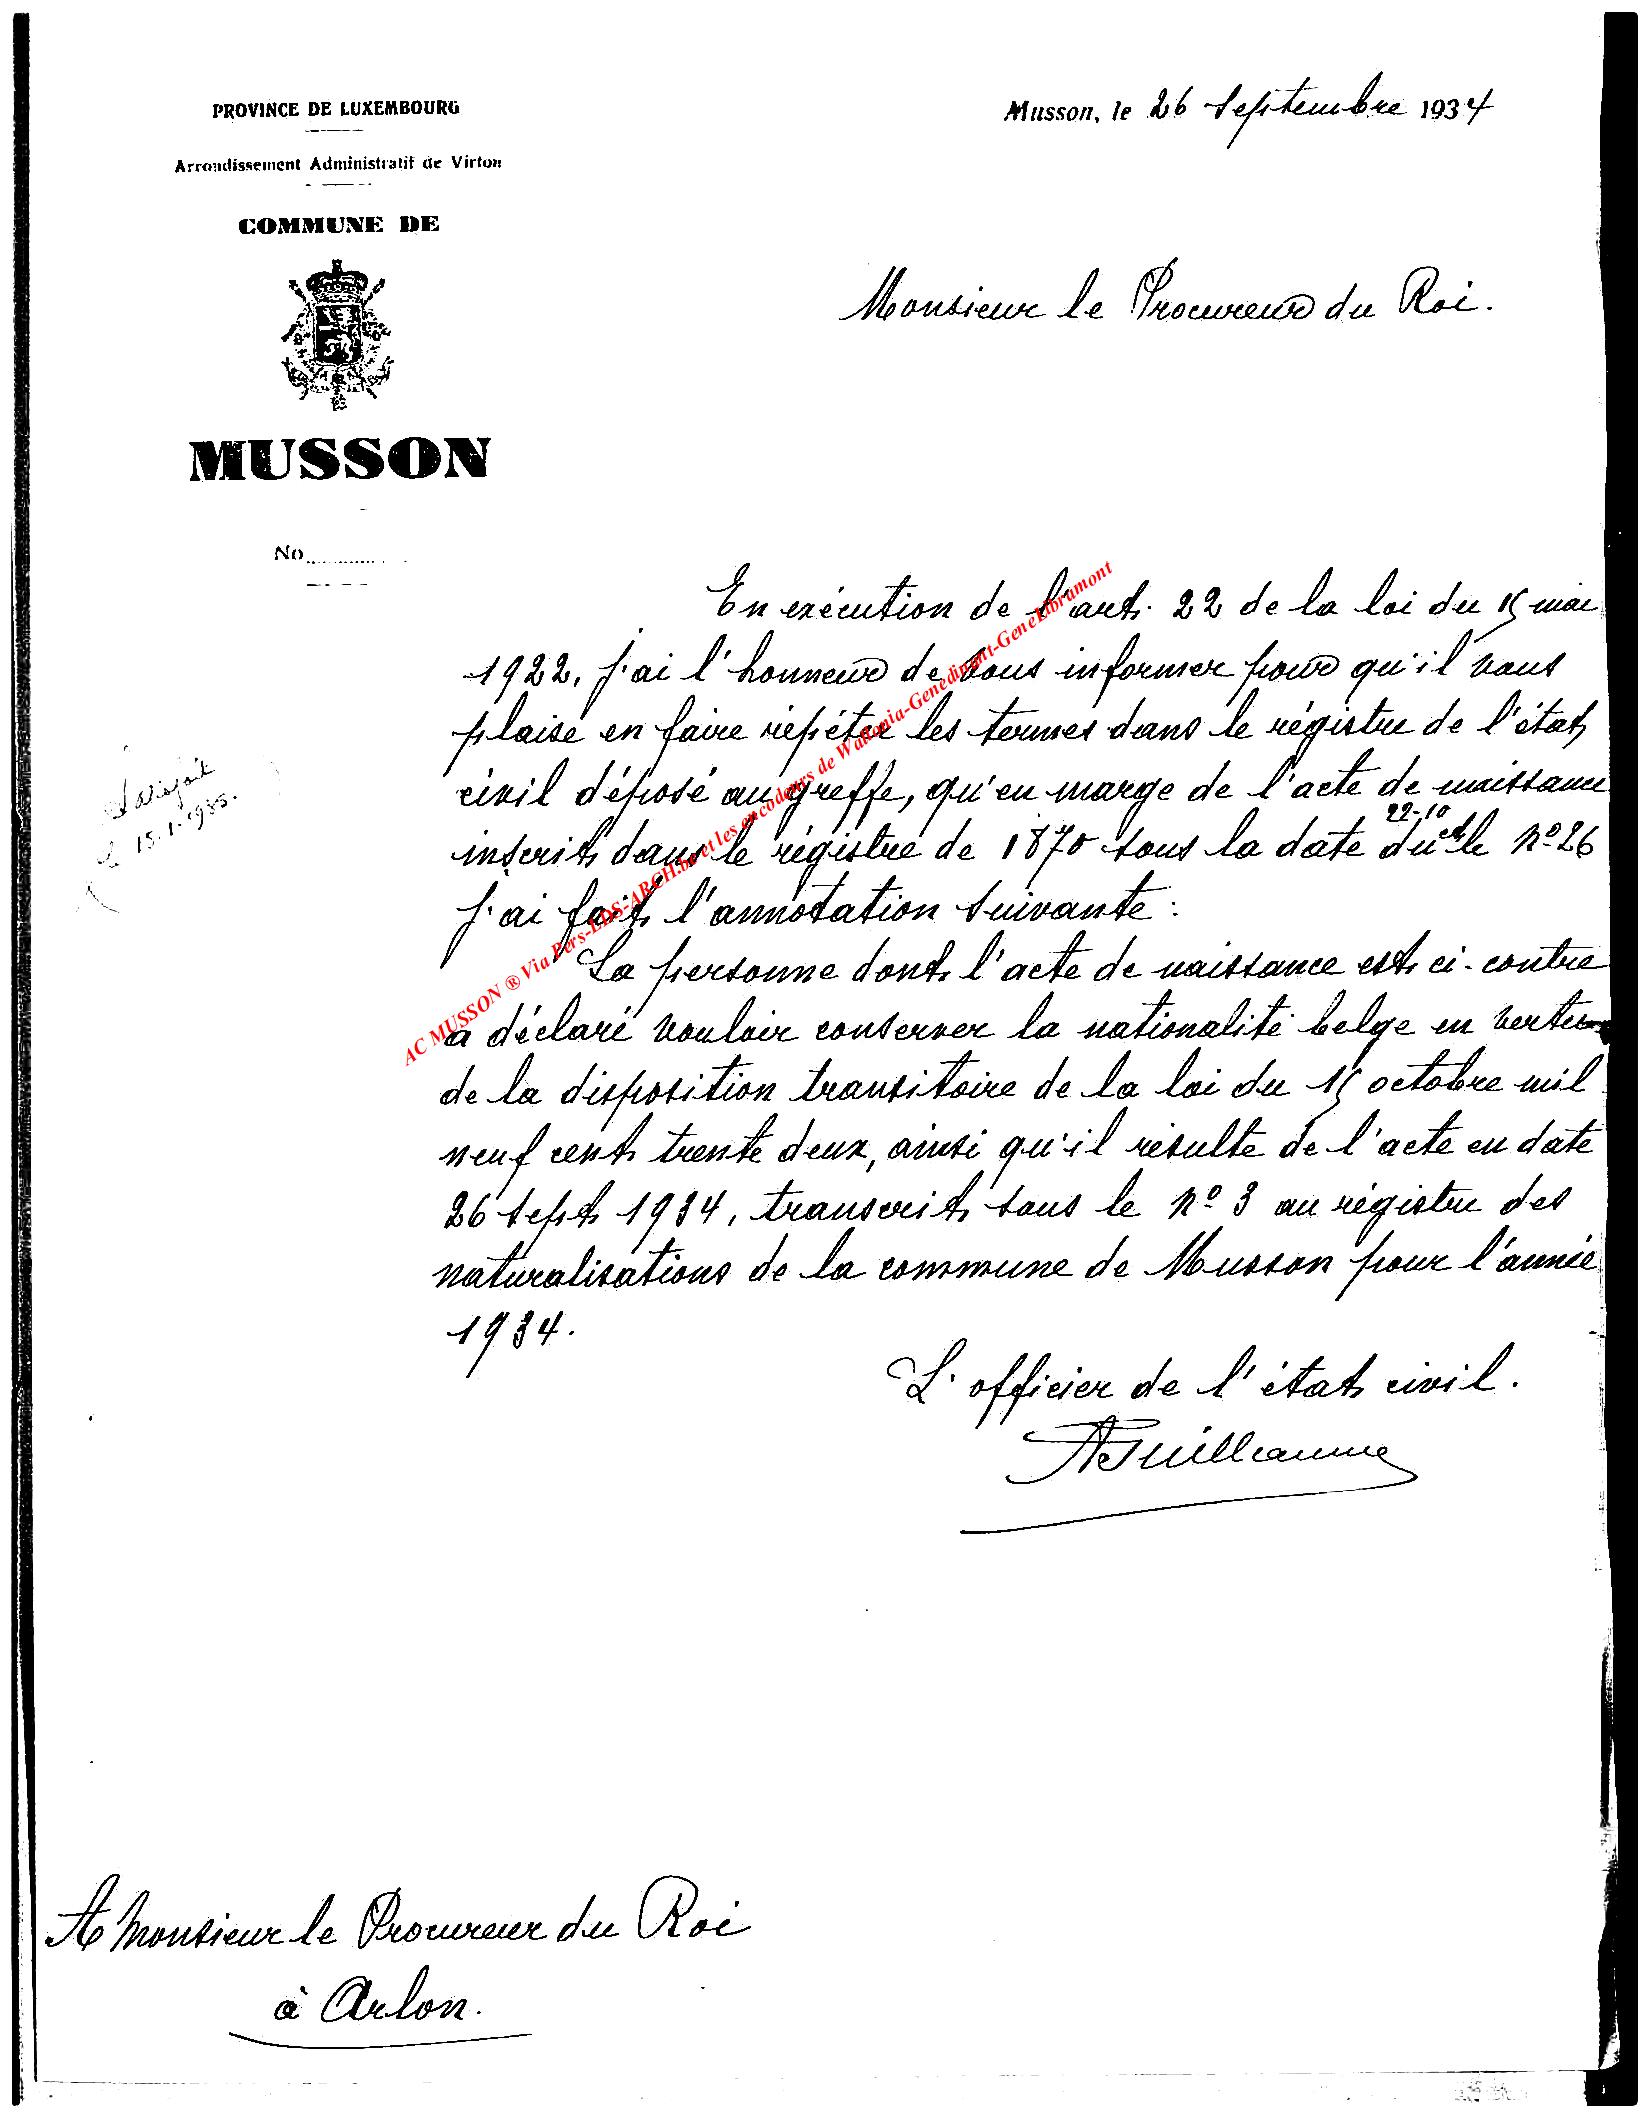 PROVINCE DE LUXEMBOURG
Arrondissement Administratif de Virton
COMMUNE DE
MUSSON
No
Musson, le 26 Septembre 1934
Monsieur le Procureur du Roi.
En exécution de l'art. 22 de la loi du 15 mai
1922, j'ai l'honneur de vous informer pour qu'il vous
plaise en faire répéter les termes dans le régistre de l'état
civil déposé au greffe, qu'en marge de l'acte de naissance
22-10
inscrit dans le régistre de 1870 sous la date du et le No 26
j'ai fait l'annotation suivante :
La personne dont l'acte de naissance est ci-contre
a déclaré vouloir conserver la nationalité belge en vertu
de la disposition transitoire de la loi du 15 octobre mil
neuf cent trente deux, ainsi qu'il résulte de l'acte en date
26 sept 1934, transcrit sous le No 3 au régistre des
naturalisations de la commune de Musson pour l'année
1934.
L'officier de l'état civil.
Guillaume
le 15.1.1935.
A Monsieur le Procureur du Roi
à Arlon.
AC MUSSON ® Via Pers-EDS-ARCH.be et les encodeurs de Wallonia-Genedinant-GeneLibramont